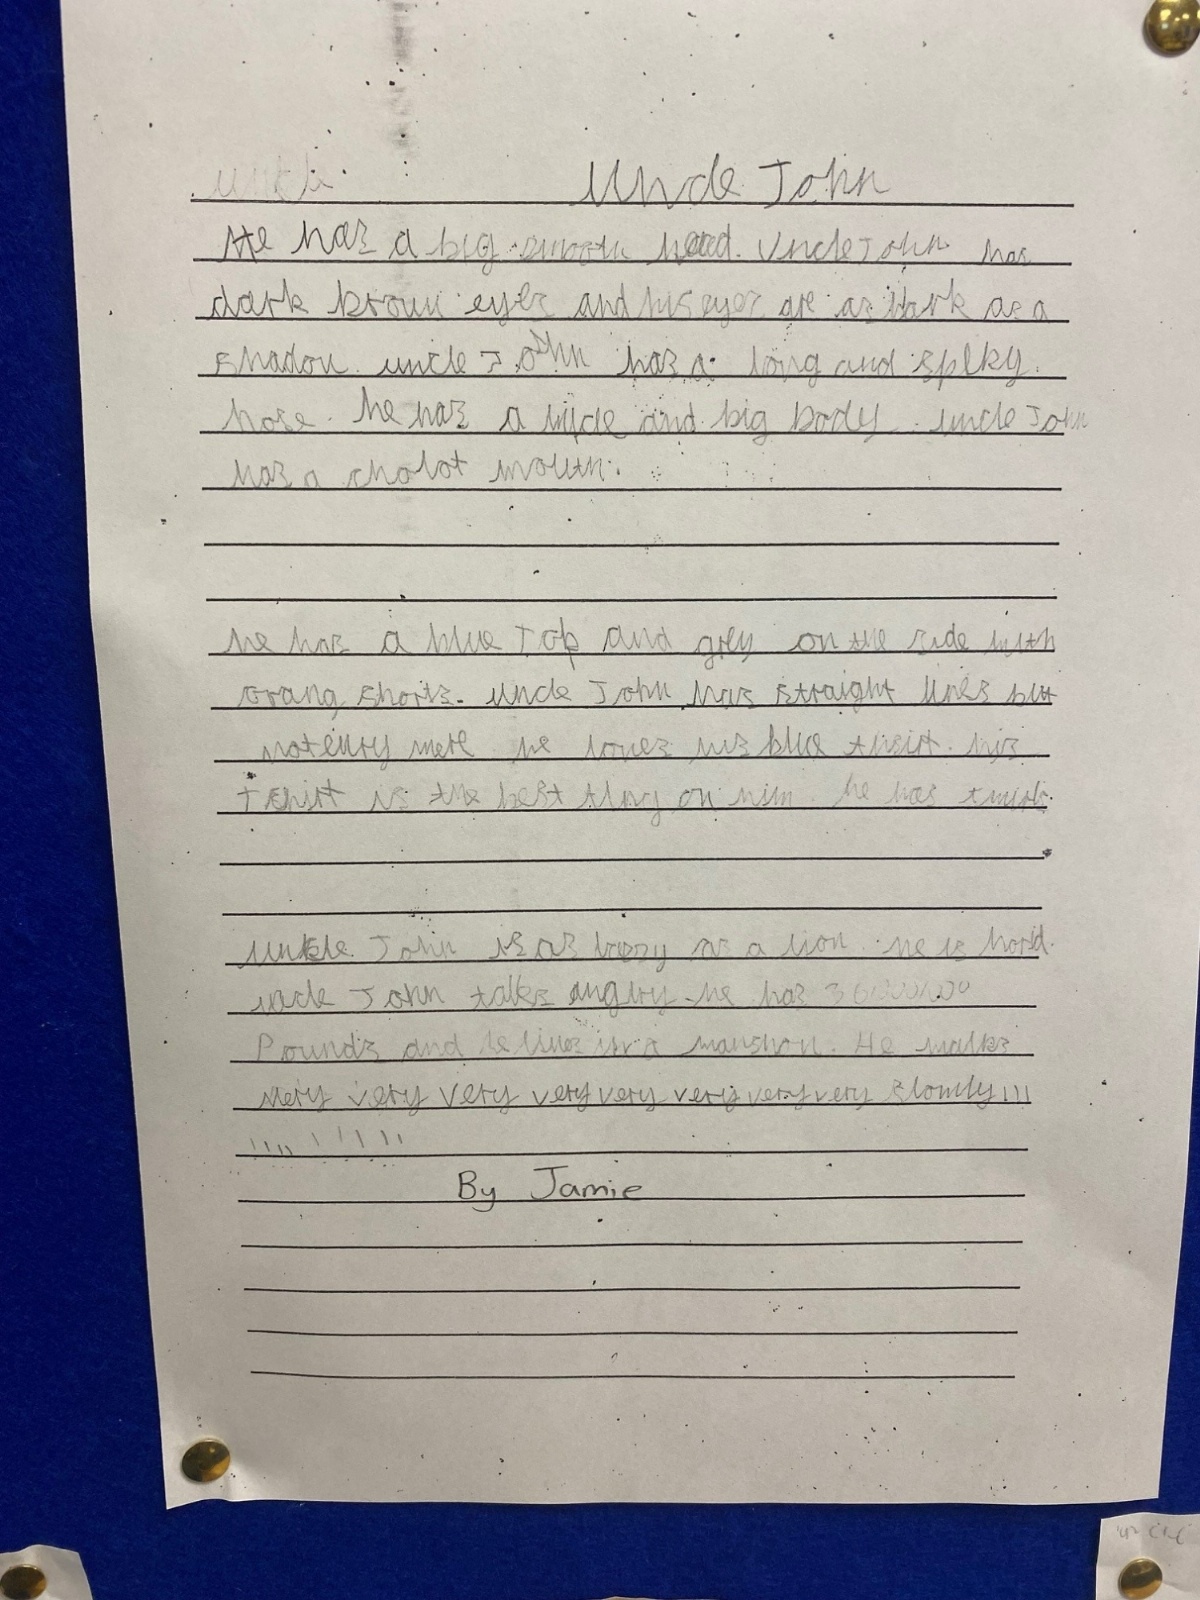 Uncle John
He has a big smooth head. Uncle John has
dark brown eyes and his eyes are as dark as a
shadow. uncle John has a long and spiky
nose. he has a wide and big body. uncle John
has a mouth.
he has a blue Top and grey on the side with
orang shorts. uncle John has straight lines but
not he loves his blue tshirt. his
Tshirt is the best thing on him. he has
John is as as a lion. he is
uncle John talks angrry. he has
Pounds and he lives in a manshon. He walks
very very very very very very very very slowly!!!
!!!!!!!!
By Jamie